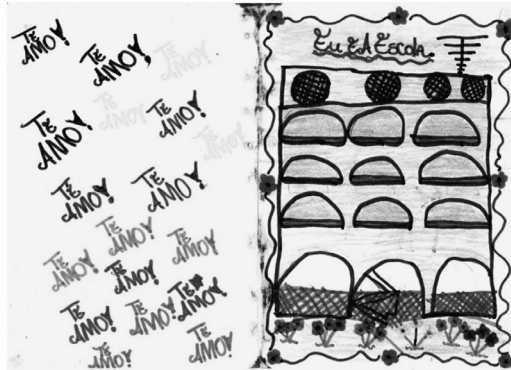 TE
AMO!
TE
AMO!
TE
AMO!
TE
AMO!
TE
AMO!
TE
AMO!
TE
AMO!
TE
AMO!
TE
AMO!
TE
AMO!
TE
AMO!
TE
AMO!
TE
AMO!
TE
AMO!
TE
AMO!
TE
AMO!
TE
AMO!
TE
AMO!
Eu E A Escola